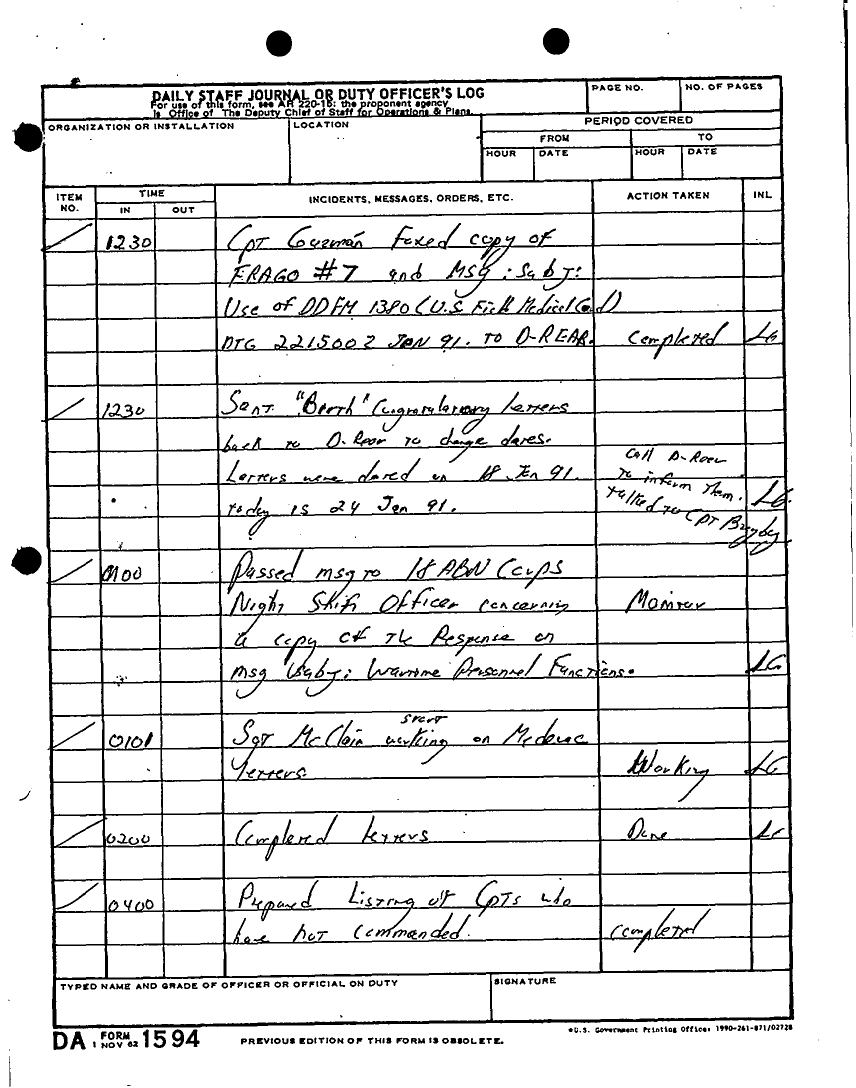 DAILY STAFF JOURNAL OR DUTY OFFICER'S LOG
For use of this form, see AR 220-15; the proponent agency
is Office of The Deputy Chief of Staff for Operations & Plans.
PAGE NO.
NO. OF PAGES
ORGANIZATION OR INSTALLATION
LOCATION
PERIOD COVERED
FROM
TO
HOUR
DATE
HOUR
DATE
ITEM NO.
TIME
IN
OUT
INCIDENTS, MESSAGES, ORDERS, ETC.
ACTION TAKEN
INL
1230 Cpt Guzmán Faxed copy of
FRAGO #7 and MSG: Subj:
Use of DD FM 1380 (U.S. Field Medical Card)
DTG 221500Z JAN 91. TO D-REAR. Completed LG
1230 Sent "Birth" Congratulatory Letters
back to D-Rear to change dates.
Letters were dated on 18 Jan 91. Call D-Rear
to inform them. LG
today is 24 Jan 91. talked to CPT
Passed msg to 18 ABN Corps
Night Shift Officer concerning Monitor
a copy of the Response on
msg Subj: Wartime Personnel Functions. LG
0101 Sgt McClain start working on Medevac
Letters Working LG
0200 Completed Letters Done LG
0400 Prepared Listing of Cpts who
have not commanded. completed
TYPED NAME AND GRADE OF OFFICER OR OFFICIAL ON DUTY
SIGNATURE
DA FORM 1 NOV 62 1594
PREVIOUS EDITION OF THIS FORM IS OBSOLETE.
*U.S. Government Printing Office: 1990-261-871/02728